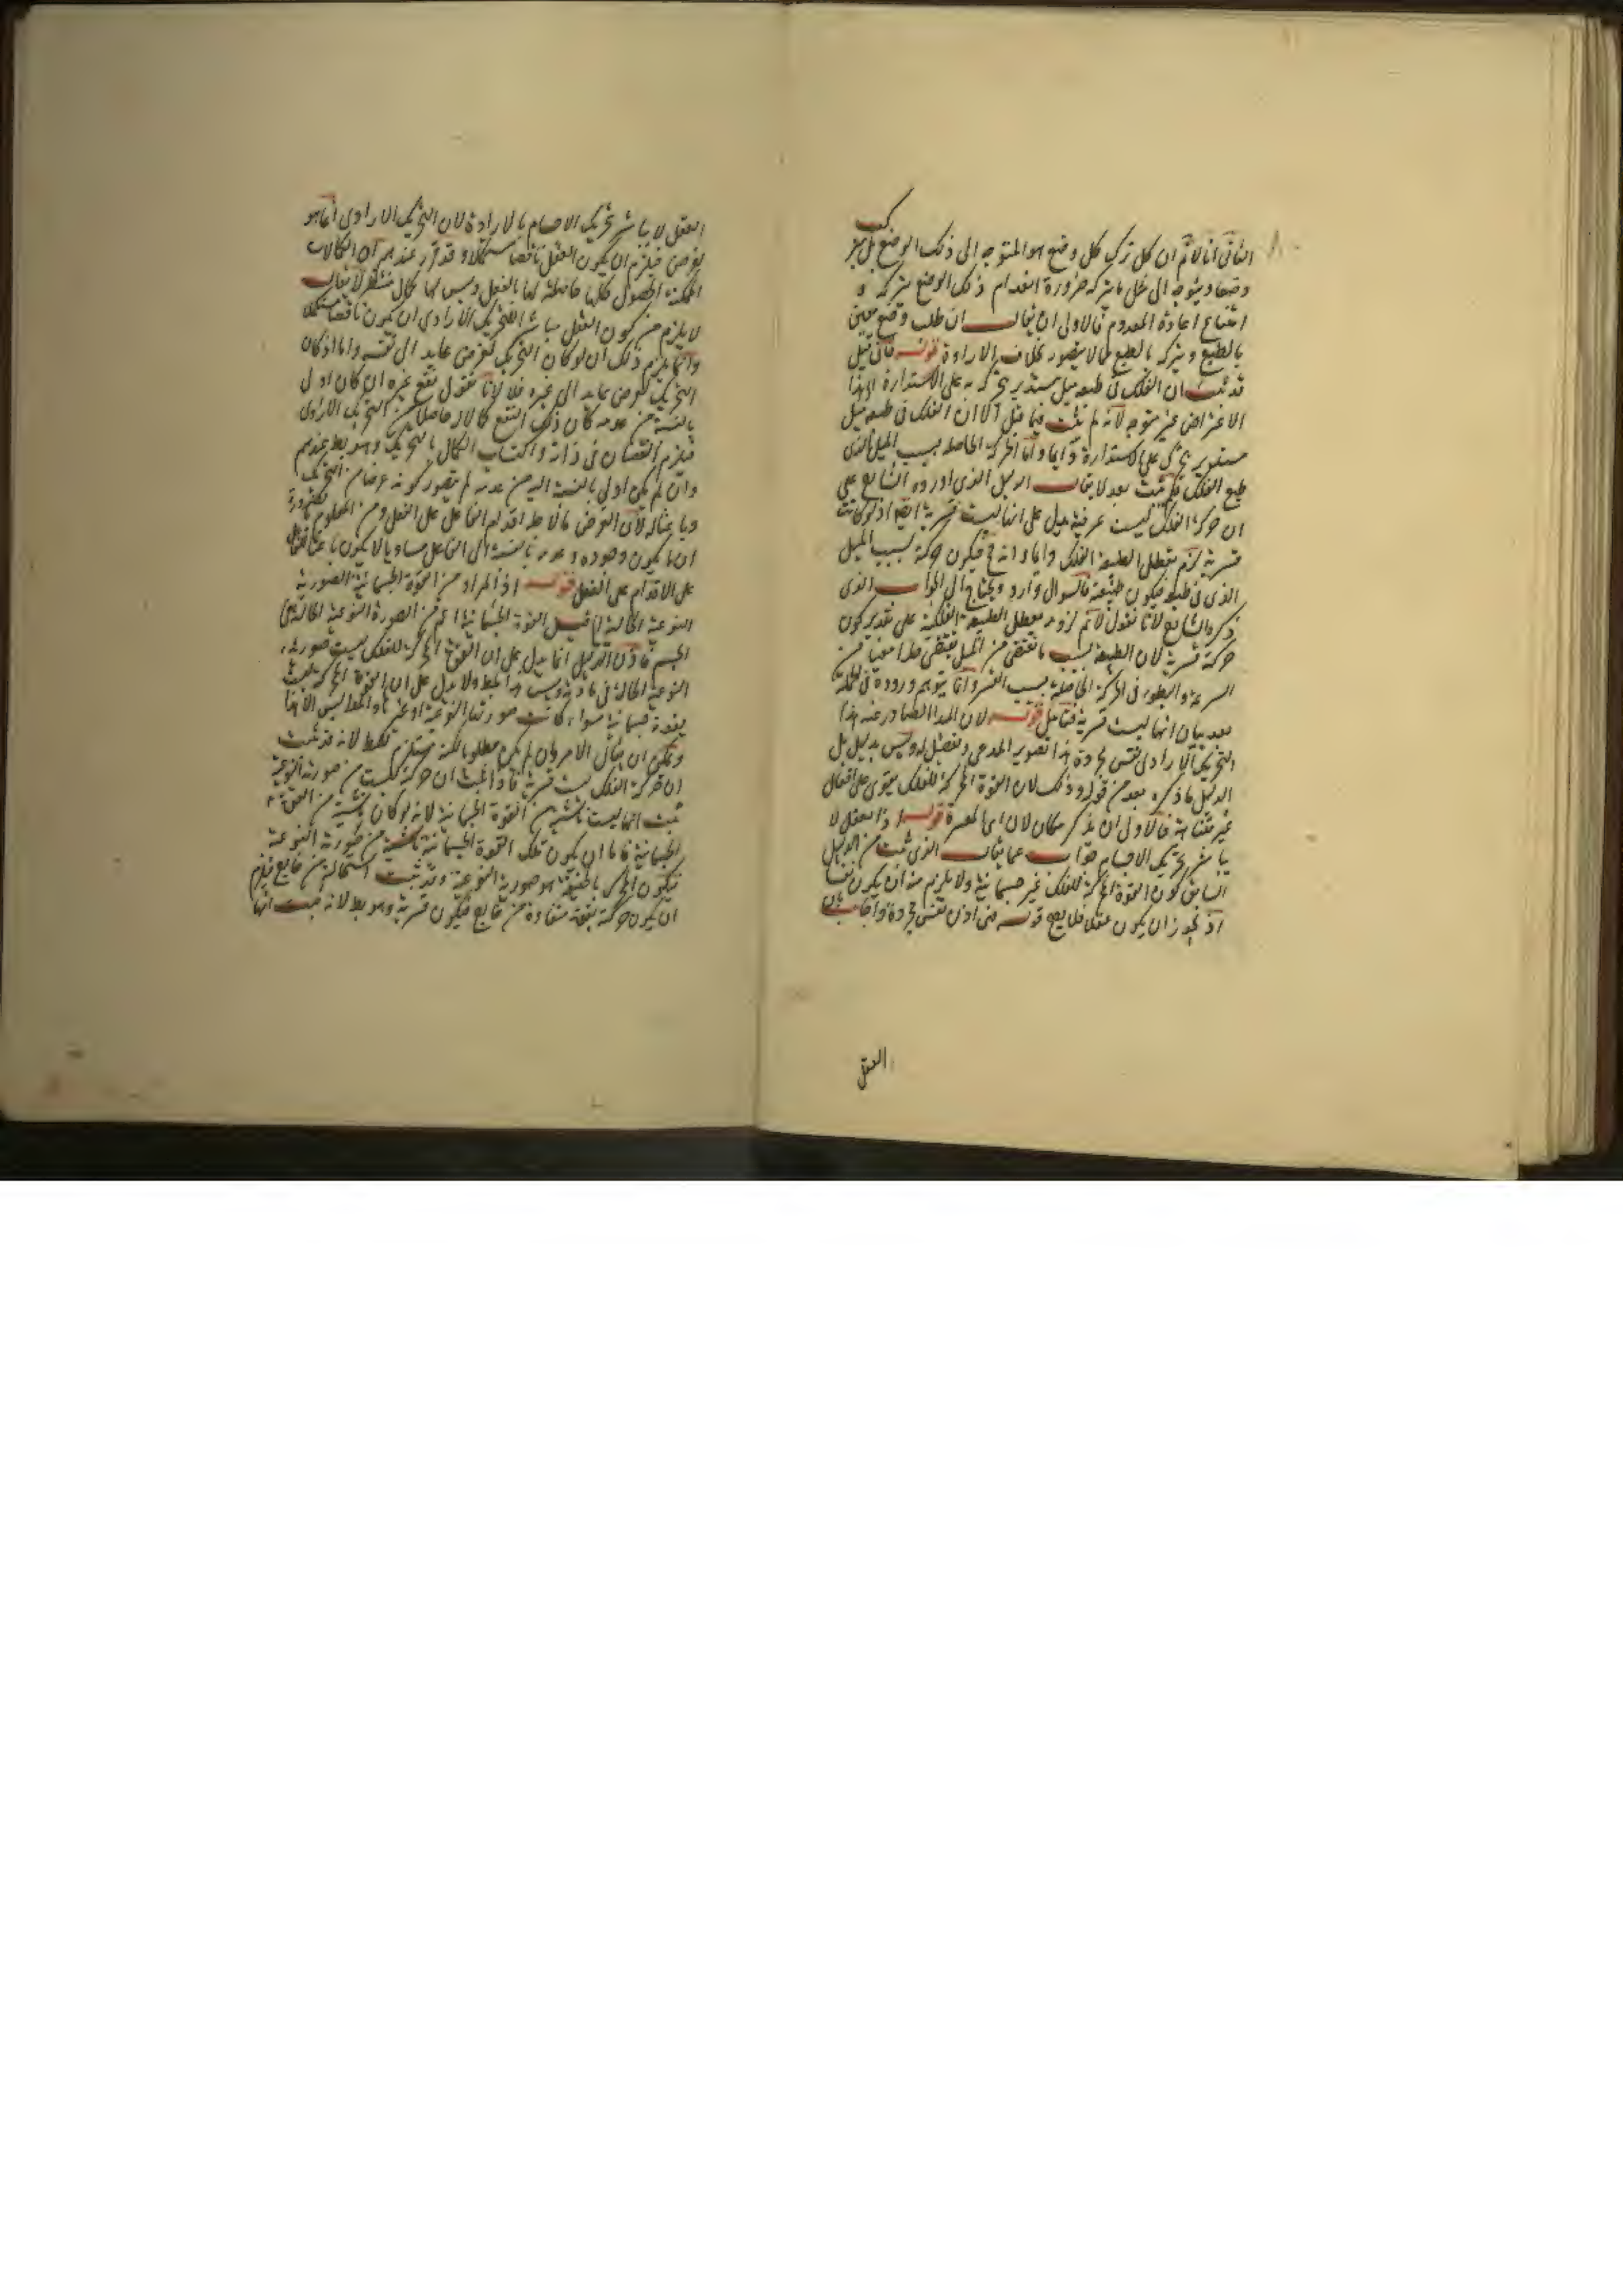 الثانى انا لا نم ان كل ترك كل وضع هو المتوجه الى ذلك الوضع بل يترك
وضعا ويتوجه الى مثل ما يتركه ضرورة انعدام ذلك الوضع بتركه و
امتناع اعادة المعدوم فالاولى ان يقال ان طلب وضع معين
بالطبع وتركه بالطبع لا يتصور بخلاف الارادة قوله فان قيل
قد ثبت ان الفلك فى طبعه ميل مستدير يتحرك به على الاستدارة هذا
الاعتراض غير متوجه لانه لم يثبت فيما قبل الا ان الفلك فى طبعه ميل
مستدير يتحرك على الاستدارة دائما واما الحركة الحاصلة بسبب الميل الذى
طبع الفلك فلم يثبت بعد لا يقال الدليل الذى اورده الشارح على
ان حركة الفلك ليست عرضية يدل على انها ليست قسرية ايضا اذ لو كانت
قسرية لزم تعطل الطبيعة الفلك دائما وانه ح فيكون حركة بسبب الميل
الذى فى طبعه فيكون طبيعية فالسوال وارد ويحتاج الى الجواب الذى
ذكره الشارح لانا نقول لا نم لزوم تعطل الطبيعة الفلكية على تقدير كون
حركة قسرية لان الطبيعة بسبب ما تقتضى من الميل تقتضى حدا معينا من
السرعة والبطوء فى الحركة الحاصلة بسبب القسر وانما يتوهم وروده فى
بعد بيان انها ليست قسرية فتامل قوله لان المبدا الصادر عنه هذا
التحريك الارادى نفس مجردة هذا تصوير المدعى وتفصيل له وليس بدليل بل
الدليل ما ذكره بعد من قوله وذلك لان القوة المحركة للفلك تقوى على افعال
غير متناهية فالاولى ان يذكر مكان لان اى المفسرة قوله اذ العقل لا
يباشر تحريك الاجسام جواب عما يقال الذى ثبت من الدليل
السابق كون القوة المحركة للفلك غير جسمانية ولا يلزم منه ان يكون نفسا
اذ يجوز ان يكون عقلا فلا يصح قوله فهى اذن نفس مجردة واجاب بان
العقل
العقل لا يباشر تحريك الاجسام بالارادة لان التحريك الارادى انما هو
لغرض فيلزم ان يكون العقل ناقصا مستكملا وقد تقرر عندهم ان الكمالات
الممكنة الحصول كلها حاصلة لها بالفعل وليس لها كمال منتظر لا يقال
لا يلزم من كون العقل مباشر التحريك الارادى ان يكون ناقصا مستكملا
وانما يلزم ذلك ان لو كان التحريك لغرض عايد الى نفسه واما اذا كان
التحريك لغرض عايد الى غيره فلا لانا نقول نفع غيره ان كان اولى
بالنسبة من عدمه كان ذلك النفع كمالا حاصلا من التحريك الارادى
فيلزم النقصان فى ذاته واكتساب الكمال بالتحريك وهو بط عندهم
وان لم يكن اولى بالنسبة اليه من عدمه لم يتصور كونه غرضا من التحريك
وباعثا له لان الغرض ما لاجله اقدام الفاعل على الفعل ومن المعلوم بالضرورة
ان ما يكون وجوده وعدمه بالنسبة الى الفاعل مساويا لا يكون باعثا للفاعل
على الاقدام على الفعل قوله اذ المراد من القوة الجسمانية الصورية
النوعية الحالة قيل القوة الجسمانية اعم من الصورة النوعية الحالة فى
الجسم فاذن الدليل انما يدل على ان القوة المحركة للفلك ليست صورته
النوعية الحالة فى مادته وليس هذا المط ولا يدل على ان القوة المحركة ليست
بقوة جسمانية سواء كانت صورتها النوعية او غيرها والمط ليس الا هذا
ويمكن ان يقال الامر وان لم يكن مطلوبا لكنه مستلزم للمط لانه قد ثبت
ان حركة الفلك ليست قسرية فاذا ثبت ان حركته ليست من صورته النوعية
ثبت انها ليست ناشئة من القوة الجسمانية لانه لو كان ناشئة من القوة
الجسمانية فاما ان يكون تلك القوة الجسمانية ناشئة من صورته النوعية
فيكون المحرك بالحقيقة هو صورته النوعية وقد ثبت استحالته من خارج فيلزم
ان يكون حركته بقوة مستفادة من خارج فيكون قسرية وهو بط لانه ثبت انها